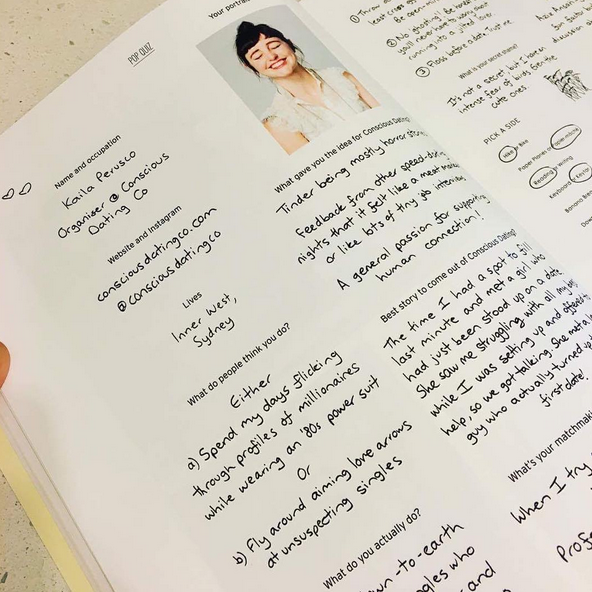 POP QUIZ
Your portrait
Name and occupation
Kaila Perusco
Organiser @ Conscious
Dating Co
Website and Instagram
consciousdatingco.com
@consciousdatingco
Lives
Inner West,
Sydney
What do people think you do?
Either
a) Spend my days flicking
through profiles of millionaires
while wearing an '80s power suit
Or
b) Fly around aiming love arrows
at unsuspecting singles
What do you actually do?
-to-earth
who
and
What gave you the idea for Conscious Dating?
Tinder being mostly horror
Feedback from other speed-dating
nights that it felt like a meat market
or like lots of tiny job interviews
A general passion for supporting
human connection!
Best story to come out of Conscious Dating?
The time I had a spot to fill
last minute and met a girl who
had just been stood up on a date.
She saw me struggling with all my
while I was setting up and offered to
help, so we got talking. She met a
guy who actually turned up
first date!
What's your matchmaking
When I try
① Throw
② No ghosting!
you'll never
running into a jilted lover
③ Floss before a date, trust me
What is your secret
It's not a secret but I have an
intense fear of birds. Even the
cute ones
discussion
PICK A SIDE
Hike or Bike
Paper Planes or
Reading or Writing
Keyboard or
Banana